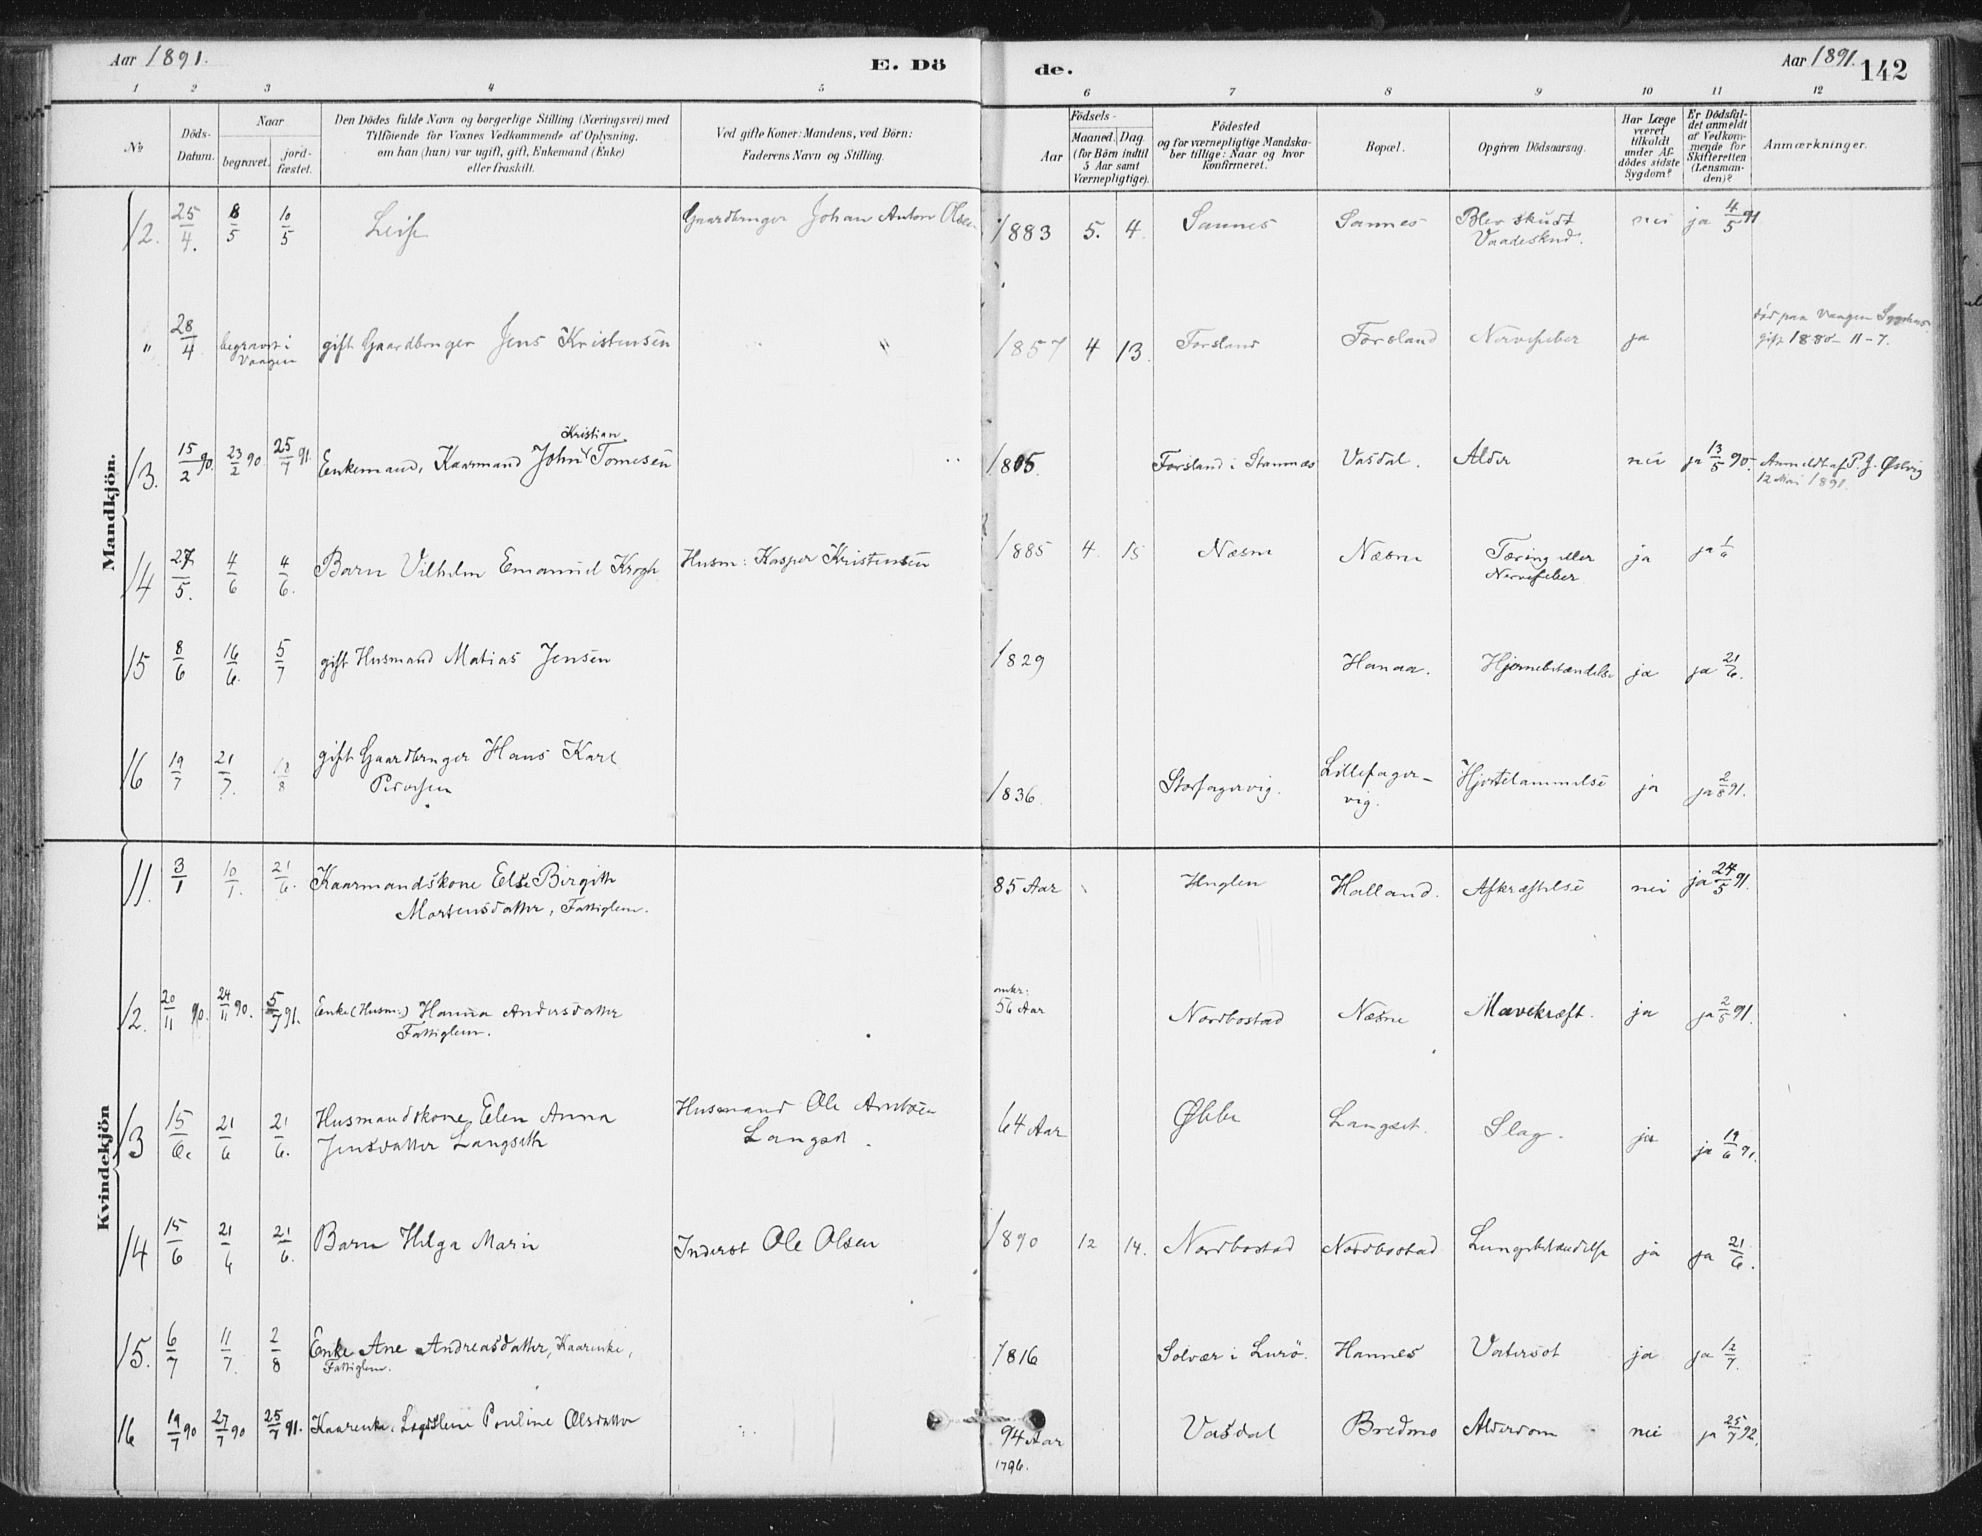 Aar 1891.
E. Dö
de.
Aar 1891.
142
1 2 3 4 5 6 7 8 9 10 11 12
№
Döds-
Datum.
Naar
begravet.
jord-
fæstet.
Den Dödes fulde Navn og borgerlige Stilling (Næringsvei) med
Tilföiende for Voxnes Vedkommende af Oplysning,
om han (hun) var ugift, gift, Enkemand (Enke)
eller fraskilt.
Ved gifte Koner: Mandens, ved Börn:
Faderens Navn og Stilling.
Födsels-
Aar
Maaned. Dag.
(for Börn indtil
5 Aar samt
Værnepligtige).
Födested
og for værnepligtige Mandska-
ber tillige: Naar og hvor
konfirmeret.
Bopæl.
Opgiven Dödsaarsag.
Har Læge
været
tilkaldt
under Af-
dödes sidste
Sygdom?
Er Dödsfal-
det anmeldt
af Vedkom-
mende for
Skifteretten
(Lensman-
den)?
Anmærkninger.
Mandkjön.
12. 25/4. 8/5 10/5 Leif Gaardbruger Johan Anton Olsen 1883 5. 4. Sannes Sannes Blev skudt nei ja 4/5 91
Vaadeskud.
" 28/4 begravet i gift Gaardbruger Jens Kristensen " 1857 4 13. Forsland Forsland Nervefeber ja død paa Vaagen Sygehus
Vaagen
gift 1880-11-7.
Kristian
13. 15/2 90. 23/2 90 25/7 91. Enkemand, Kaarmand John Tomesen 1805. Forsland i Stamnæs Vasdal. Alder nei ja 13/5 90. Anmeldt af P. J. Øslvig
12 Mai 1891.
14 27/5. 4/6 4/6. Barn Vilhelm Emanuel Krogh Husm: Kasper Kristensen 1885 4. 15 Næsne Næsne Tæring eller ja ja 1/6
Nervefeber
15 8/6 16/6. 5/7 gift Husmand Matias Jensen 1829 Hanaa. Hjernebetændelse ja ja 21/6.
16 19/7 21/7. 18/8 gift Gaardbruger Hans Karl
Pedersen 1836. Storfagervig. Lillefager-
vig. Hjertelammelse ja ja 2/8 91.
Kvindekjön
11. 3/1 10/1. 21/6. Kaarmandskone Else Birgith
Mortensdatter, Fattiglem. 85 Aar Huglen Halland. Afkræftelse nei ja 24/5 91.
12. 20/11 90. 24/11 90. 5/7 91. Enke (Husm.) Hanna Andersdatter
Fattiglem.
omkr:
56 Aar Nordbostad Næsne Mavekræft. ja ja 2/5 91.
13 15/6. 21/6 21/6. Husmandskone Elen Anna Husmand Ole Arntsen
Jensdatter Langseth Langset. 64 Aar Øbbe Langset. Slag. ja ja 19/6 91.
14 15/6 21/6 21/6. Barn Helga Marie Inderst Ole Olsen 1890 12 14. Nordbostad Nordbostad Lungebetændelse ja ja 21/6.
15. 6/7 11/7. 2/8 Enke Ane Andreasdatter, Kaarenke,
Fattiglem. 1816 Solvær i Lurö. Hannes Vatersot ja ja 12/7.
16 19/7 90 27/7 90 25/7 91. Kaarenke, Lægdslem Pouline Olsdatter 94 Aar Vasdal Bredmo Alderdom nei ja 25/7 92.
1796.